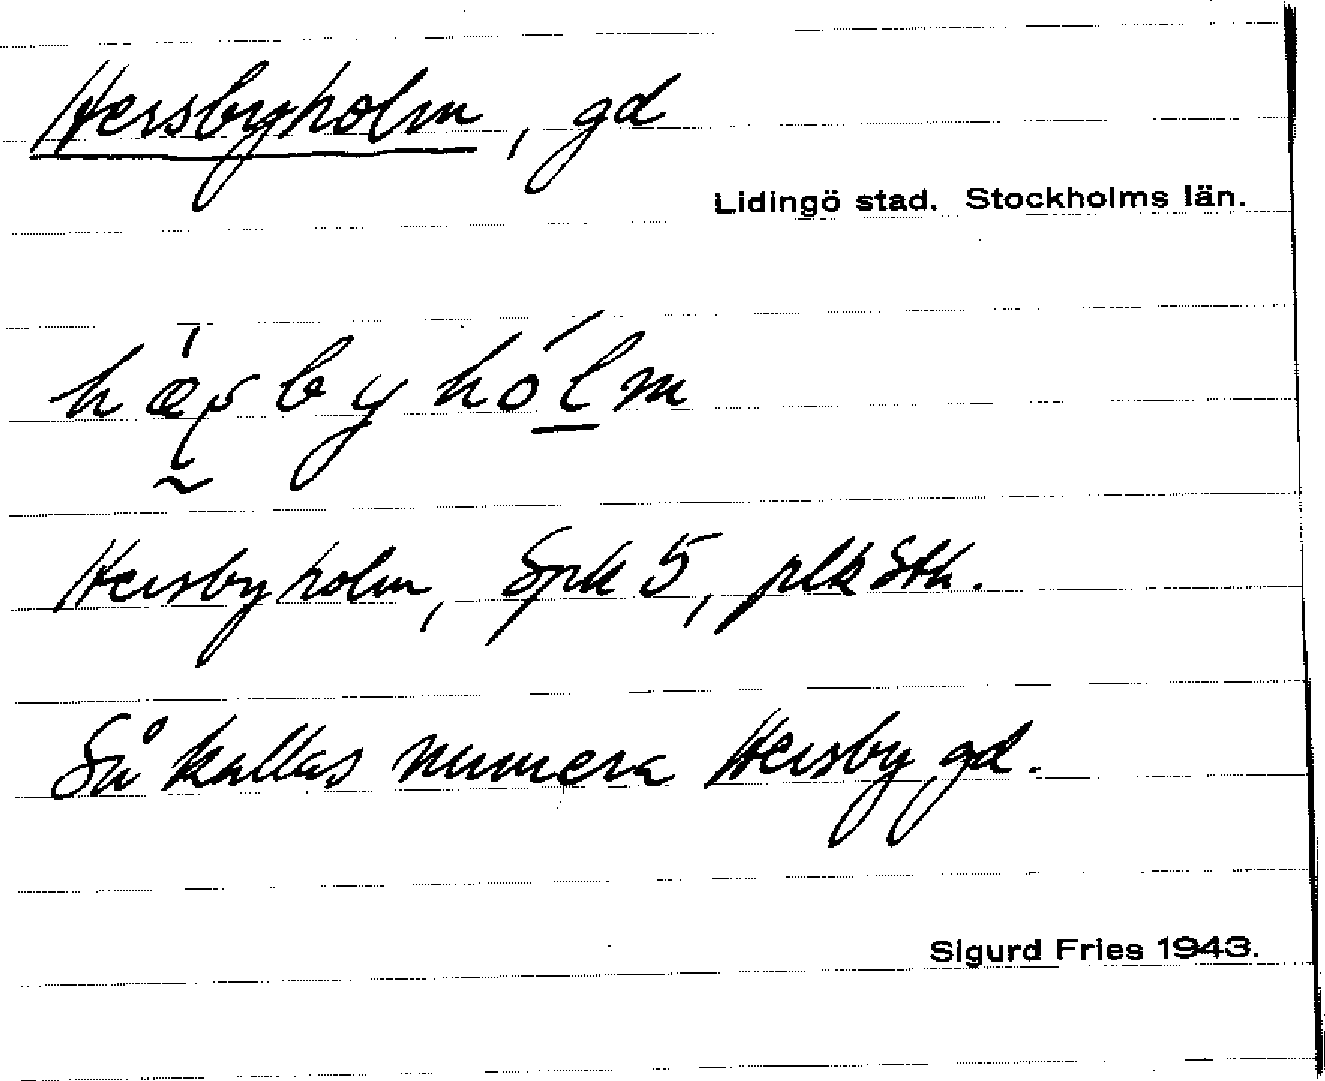 Hersbyholm, gd
Lidingö stad. Stockholms län.
Hersbyholm, Spk 5, plk Sth.
Så kallas numera Hersby gd.
Sigurd Fries 1943.